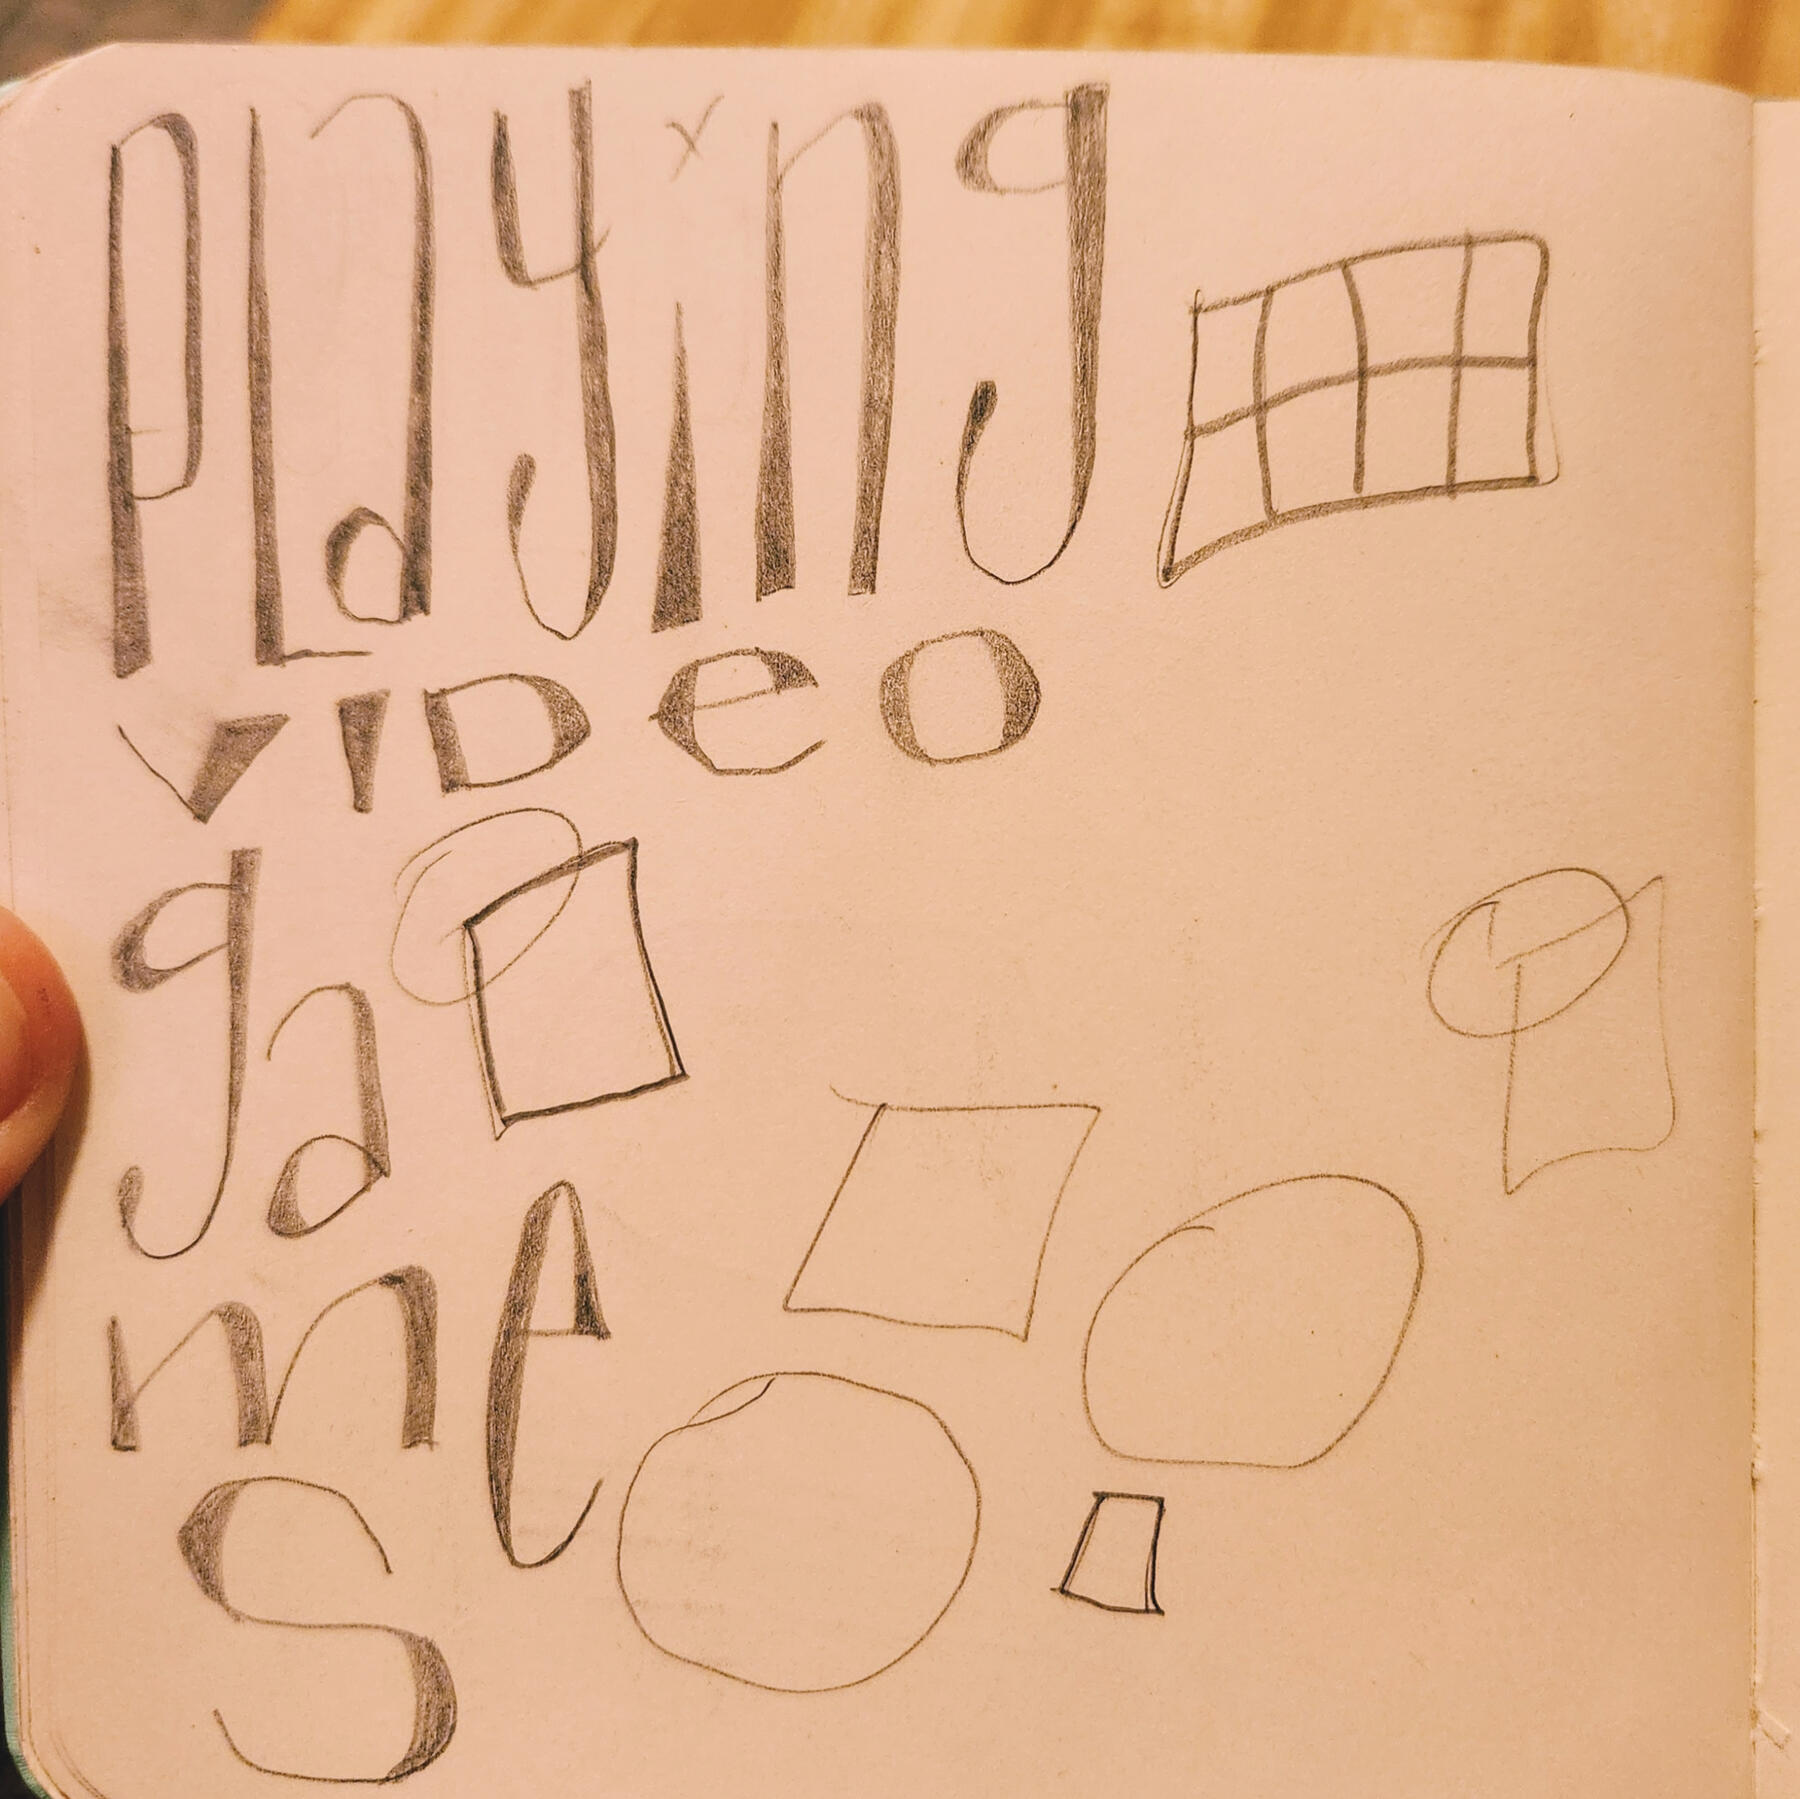 PLaying
VIDeo
ga
me
S